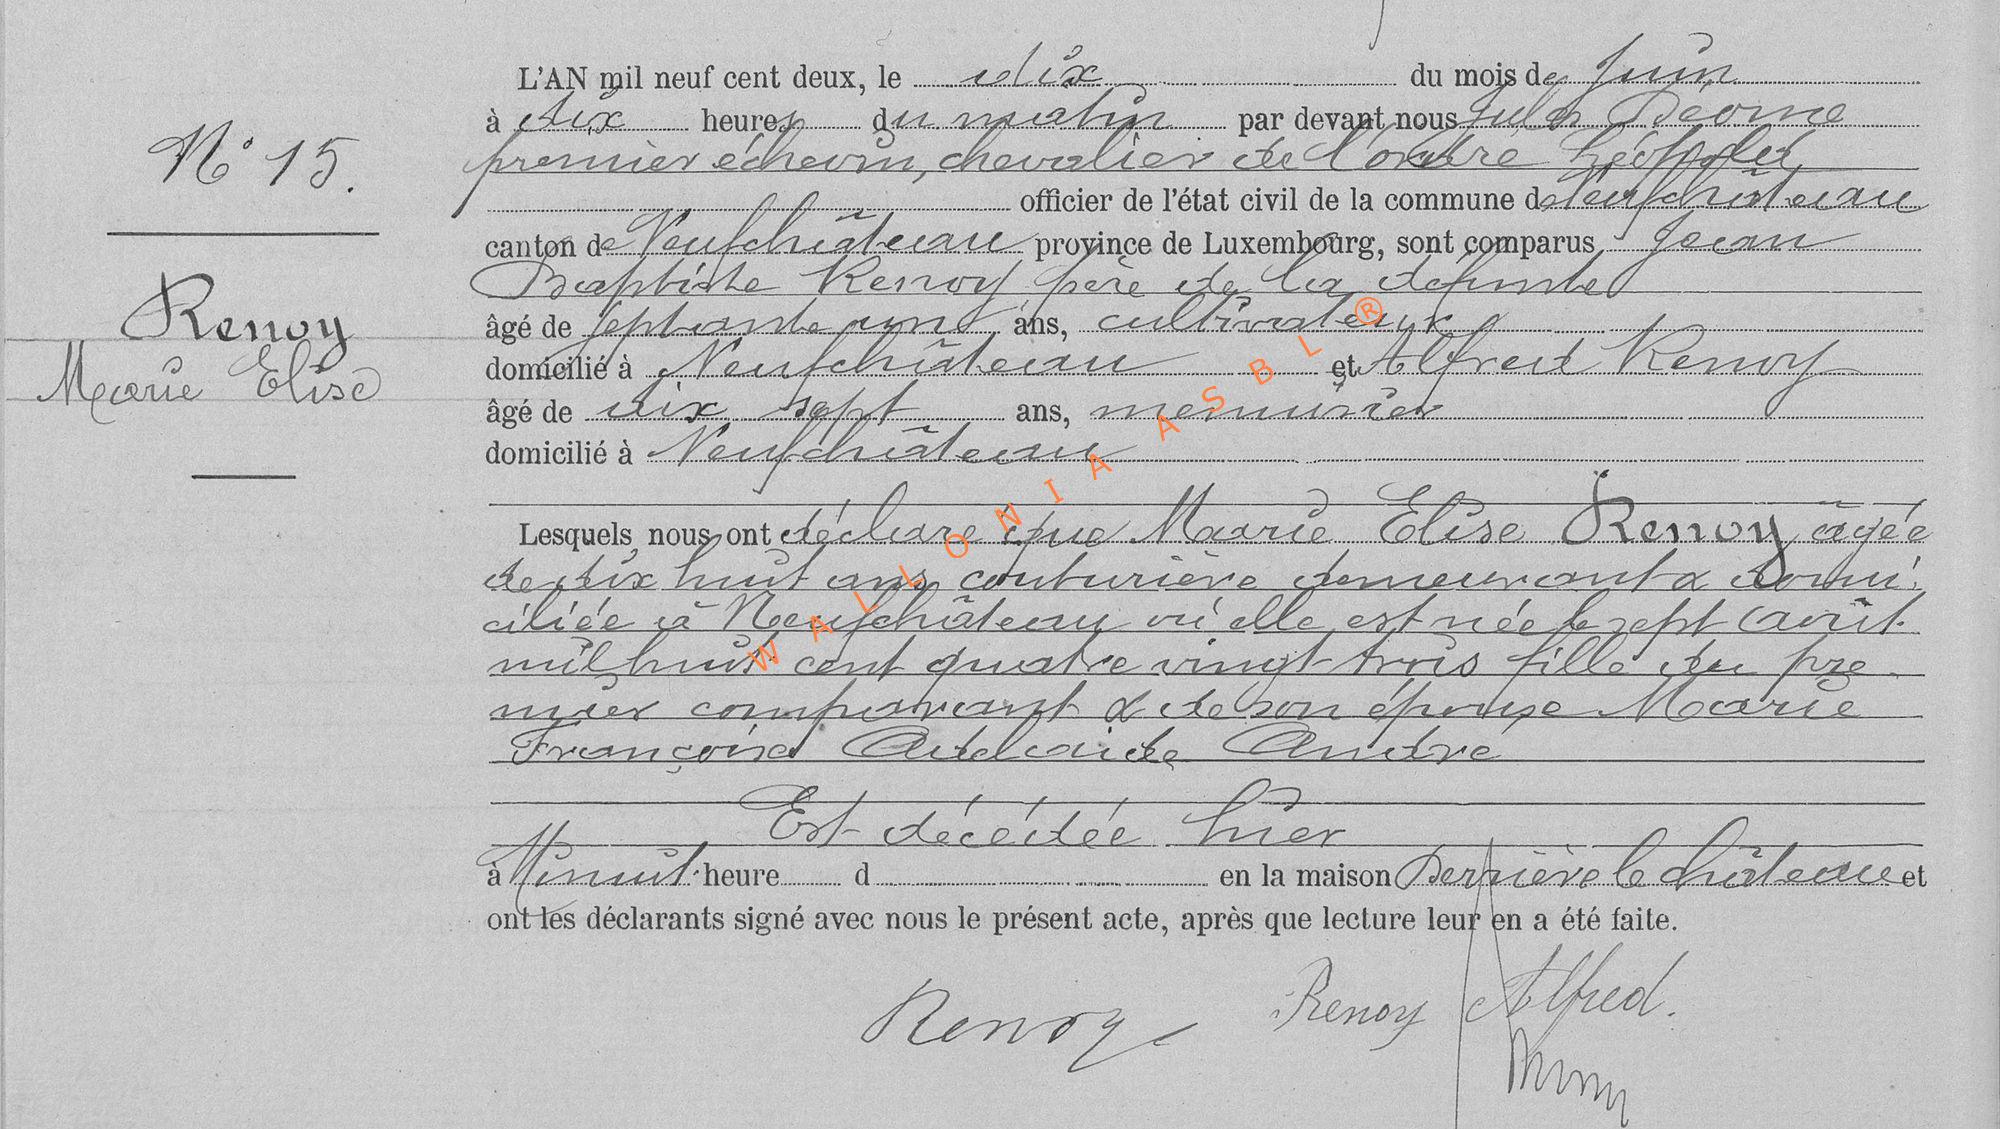 N° 15.
Renoy
Marie Elise
L'AN mil neuf cent deux, le dix du mois de Juin
à dix heures du matin par devant nous Jules
premier échevin, chevalier de l'ordre Léopold,
officier de l'état civil de la commune de Neufchâteau
canton de Neufchâteau province de Luxembourg, sont comparus Jean
Baptiste Renoy père de la défunte
âgé de septante un ans, cultivateur
domicilié à Neufchâteau et Alfred Renoy
âgé de dix sept ans, menuisier
domicilié à Neufchâteau
Lesquels nous ont déclaré que Marie Elise Renoy âgée
de dix huit ans couturière demeurant & domi
ciliée à Neufchâteau où elle est née le sept août
mil huit cent quatre vingt trois fille du pre
mier comparant & de son épouse Marie
Françoise Adelaïde André
Est décédée hier
à Minuit heure d en la maison Derrière le château et
ont les déclarants signé avec nous le présent acte, après que lecture leur en a été faite.
Renoy Renoy Alfred.
WALLONIA ASBL ®